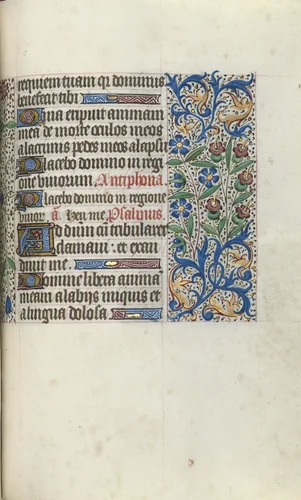 requiem tuam qr dominus
benefecit tibi
Quia eripuit animam
meā de morte oculos meos
a lacrimis pedes meos a lapsu
Placebo domino in regi
one viuorum Antiphona
Placebo domino in regione
viuor a. heu me Psalmus
Ad dūm cū tribularer
clamaui : et exau
diuit me
Domine libera anima
meam a labiis iniquis et
a lingua dolosa